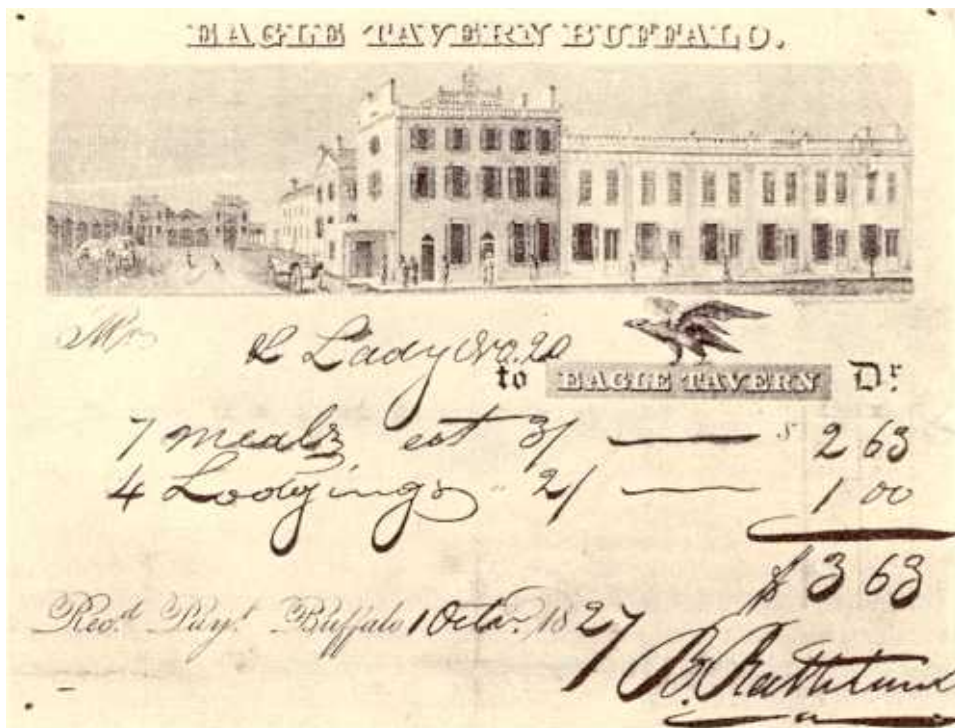 EAGLE TAVERN BUFFALO.
Mr & Lady No. 20
to EAGLE TAVERN Dr.
7 meals at 3/ — $ 2 63
4 Lodgings " 2/ — 1 00
$ 3 63
Recd. Payt. Buffalo 1 Octr. 1827
B. Rathbun